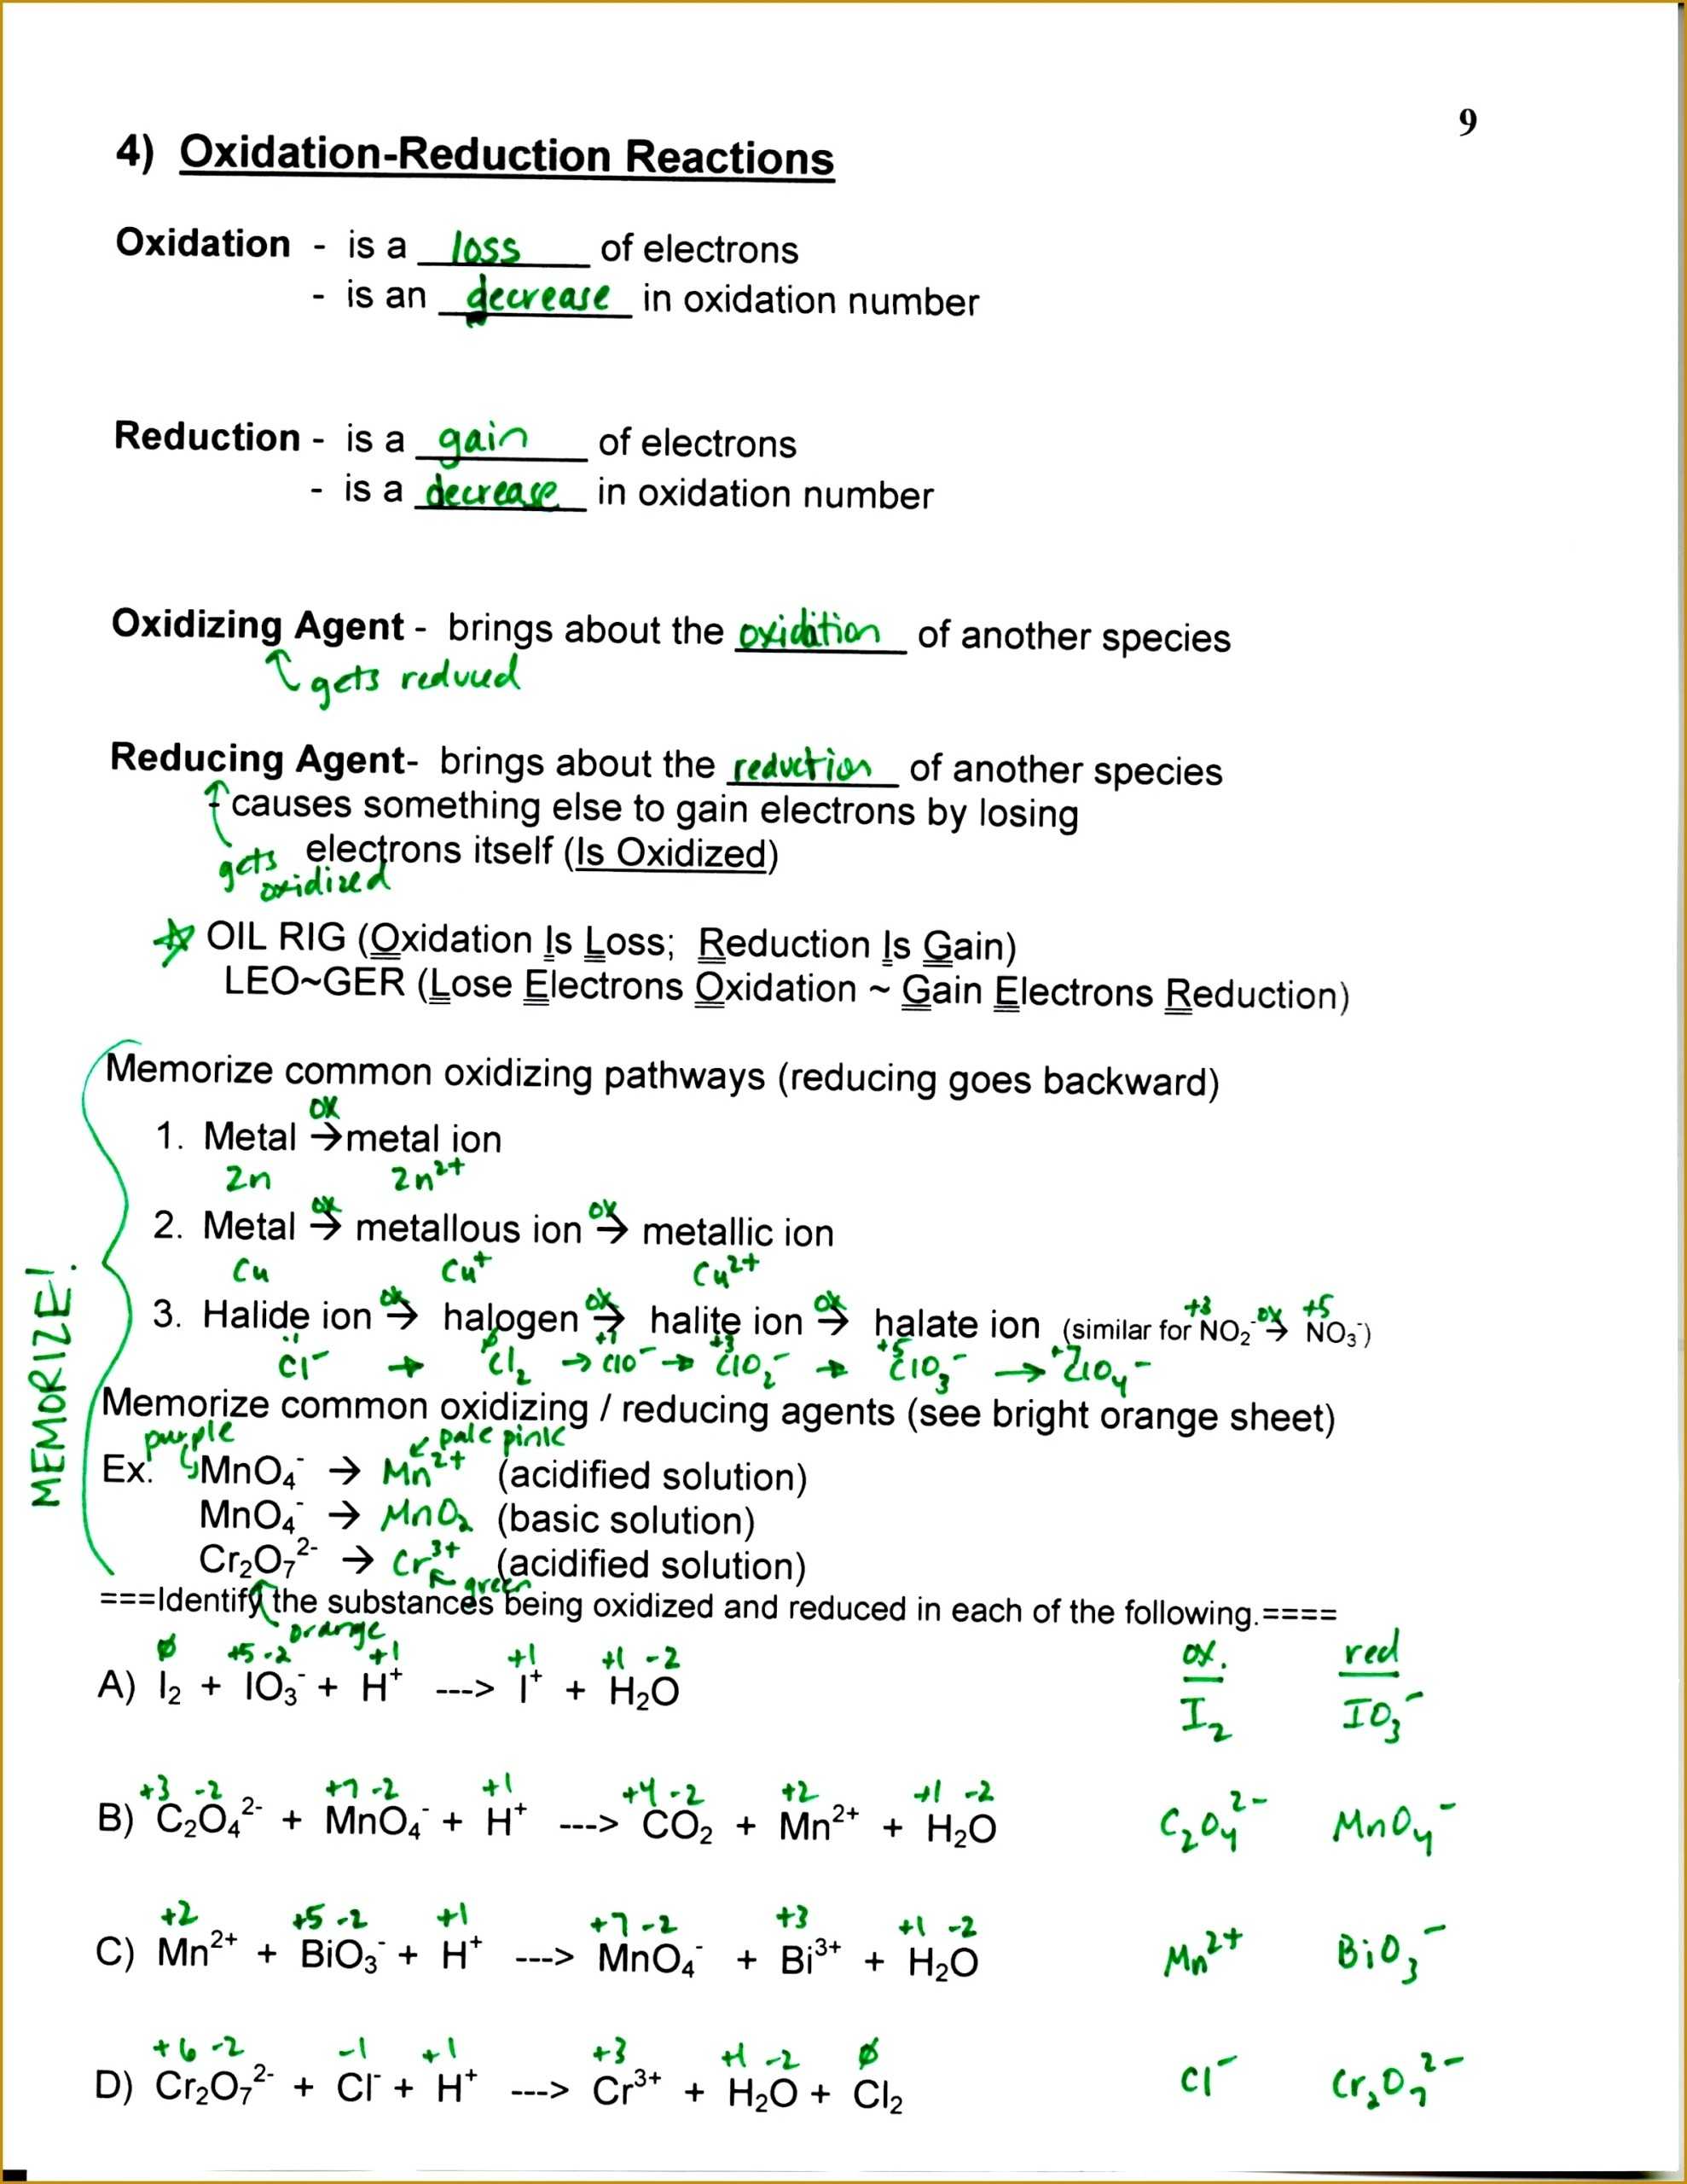 9
4) Oxidation-Reduction Reactions
Oxidation - is a loss of electrons
- is an decrease in oxidation number
Reduction - is a gain of electrons
- is a decrease in oxidation number
Oxidizing Agent - brings about the oxidation of another species
gets reduced
Reducing Agent- brings about the reduction of another species
causes something else to gain electrons by losing
electrons itself (Is Oxidized)
gets
oxidized
OIL RIG (Oxidation Is Loss; Reduction Is Gain)
LEO~GER (Lose Electrons Oxidation ~ Gain Electrons Reduction)
MEMORIZE!
Memorize common oxidizing pathways (reducing goes backward)
ox
1. Metal → metal ion
Zn Zn²⁺
ox ox
2. Metal → metallous ion → metallic ion
Cu Cu⁺ Cu²⁺
ox ox ox +3 ox +5
3. Halide ion → halogen → halite ion → halate ion (similar for NO₂⁻ → NO₃⁻)
∅ +1 +3 +5 +7
Cl⁻ → Cl₂ → ClO⁻ → ClO₂⁻ → ClO₃⁻ → ClO₄⁻
Memorize common oxidizing / reducing agents (see bright orange sheet)
purple pale pink
Ex: MnO₄⁻ → Mn²⁺ (acidified solution)
MnO₄⁻ → MnO₂ (basic solution)
Cr₂O₇²⁻ → Cr³⁺ (acidified solution)
green
===Identify the substances being oxidized and reduced in each of the following.====
orange
∅ +5 -2 +1 +1 +1 -2 ox. red
A) I₂ + IO₃⁻ + H⁺ ---> I⁺ + H₂O I₂ IO₃⁻
+3 -2 +7 -2 +1 +4 -2 +2 +1 -2
B) C₂O₄²⁻ + MnO₄⁻ + H⁺ ---> CO₂ + Mn²⁺ + H₂O C₂O₄²⁻ MnO₄⁻
+2 +5 -2 +1 +7 -2 +3 +1 -2
C) Mn²⁺ + BiO₃⁻ + H⁺ ---> MnO₄⁻ + Bi³⁺ + H₂O Mn²⁺ BiO₃⁻
+6 -2 -1 +1 +3 +1 -2 ∅
D) Cr₂O₇²⁻ + Cl⁻ + H⁺ ---> Cr³⁺ + H₂O + Cl₂ Cl⁻ Cr₂O₇²⁻